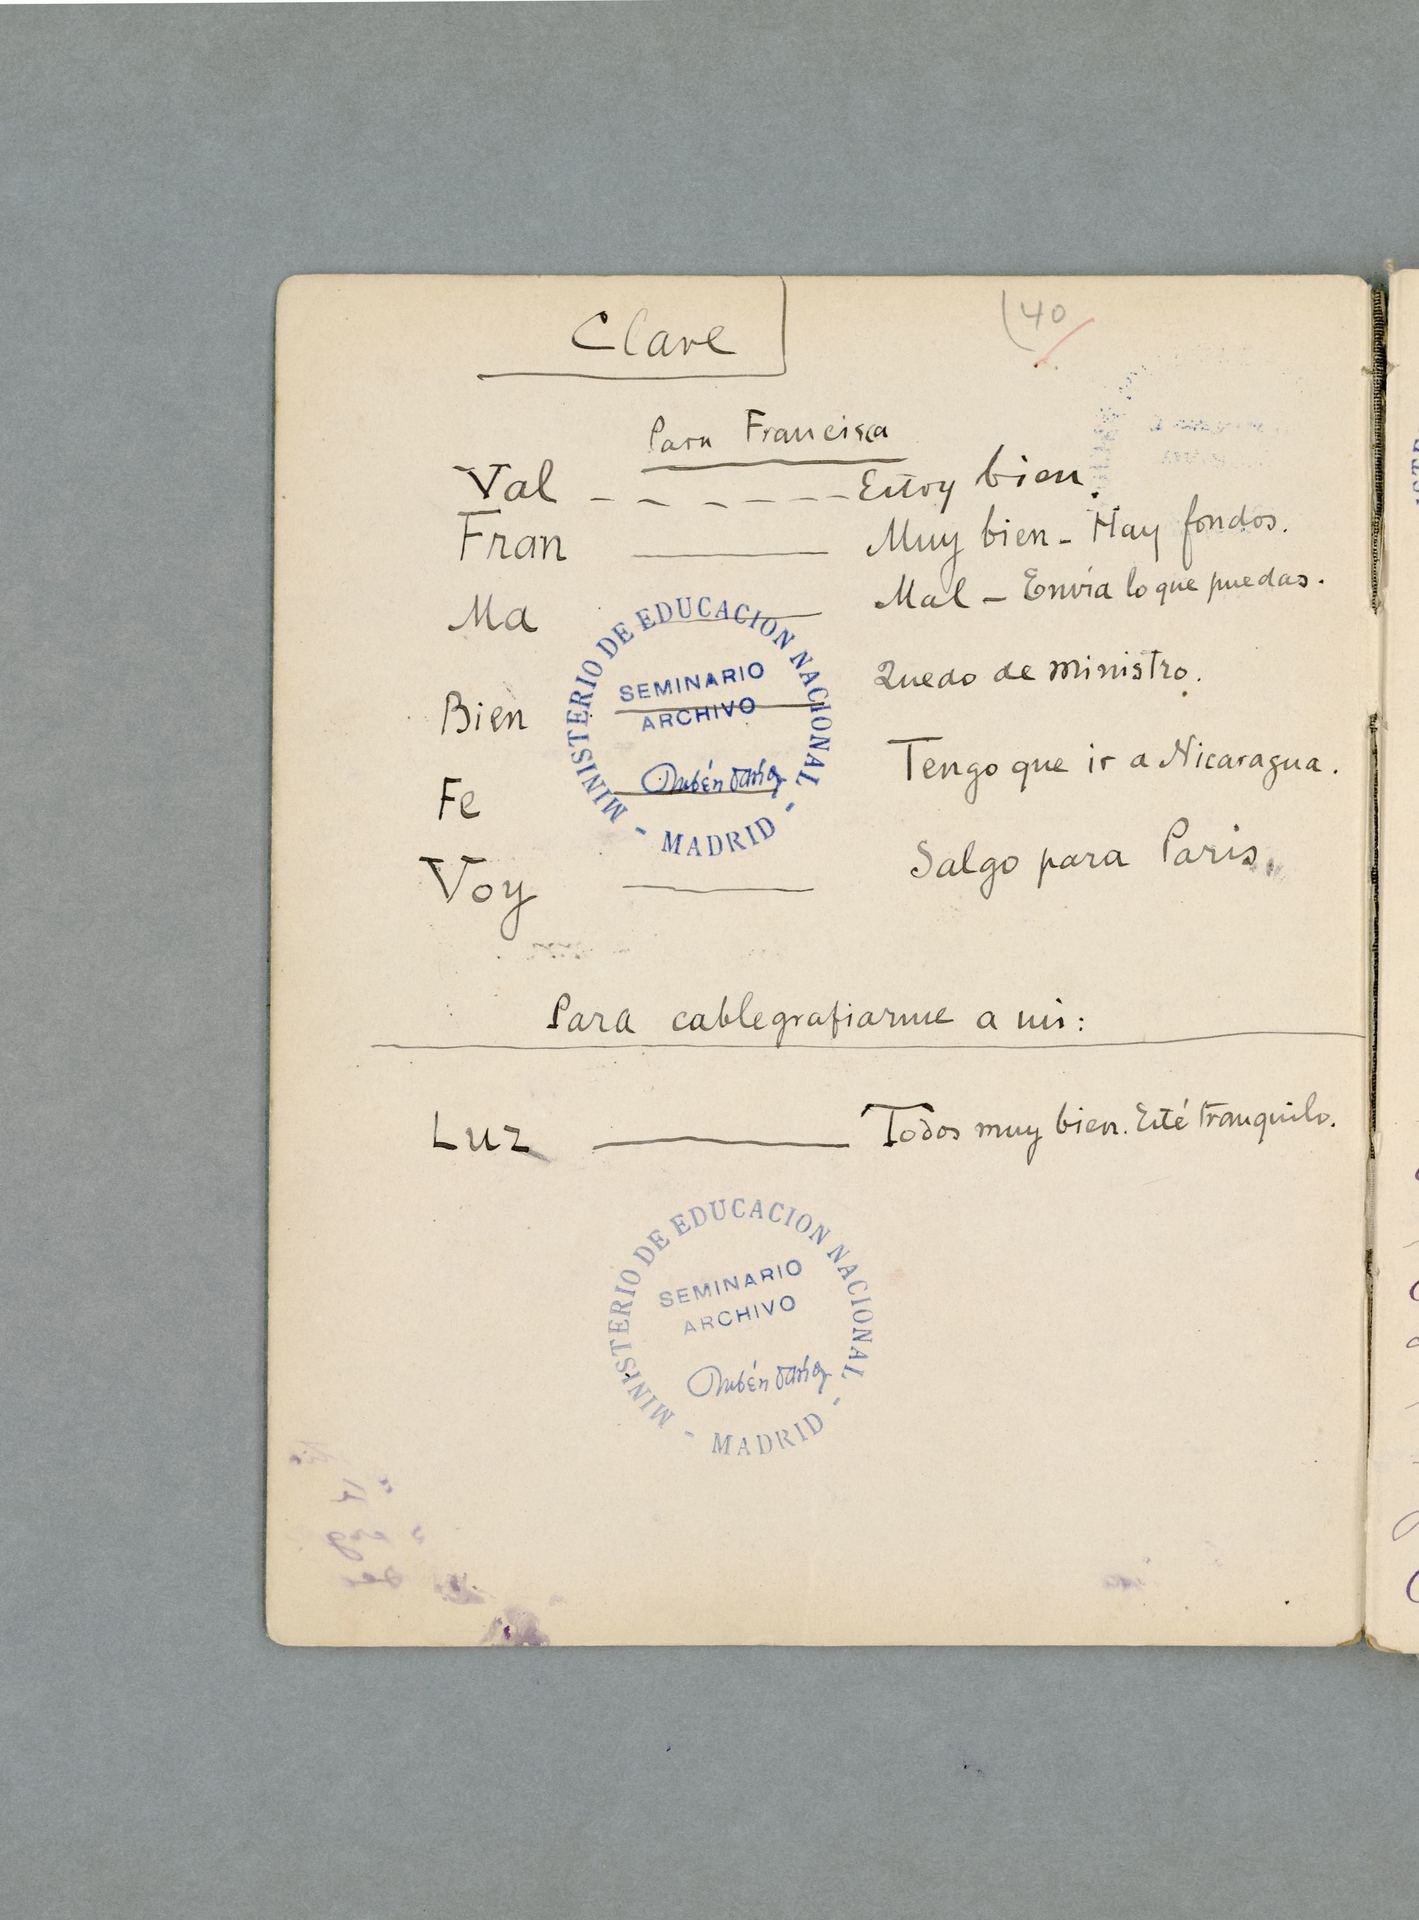 Clave
40
Para Francisca
Val - - - - - - Estoy bien.
Fran ——— Muy bien - Hay fondos.
Ma ——— Mal - Envía lo que puedas.
Bien ——— Quedo de ministro.
Fe ——— Tengo que ir a Nicaragua.
Voy ——— Salgo para Paris.
MINISTERIO DE EDUCACION NACIONAL - MADRID -
SEMINARIO
ARCHIVO
Rubén Darío
Para cablegrafiarme a mi:
Luz ——— Todos muy bien. Esté tranquilo.
MINISTERIO DE EDUCACION NACIONAL - MADRID -
SEMINARIO
ARCHIVO
Rubén Darío